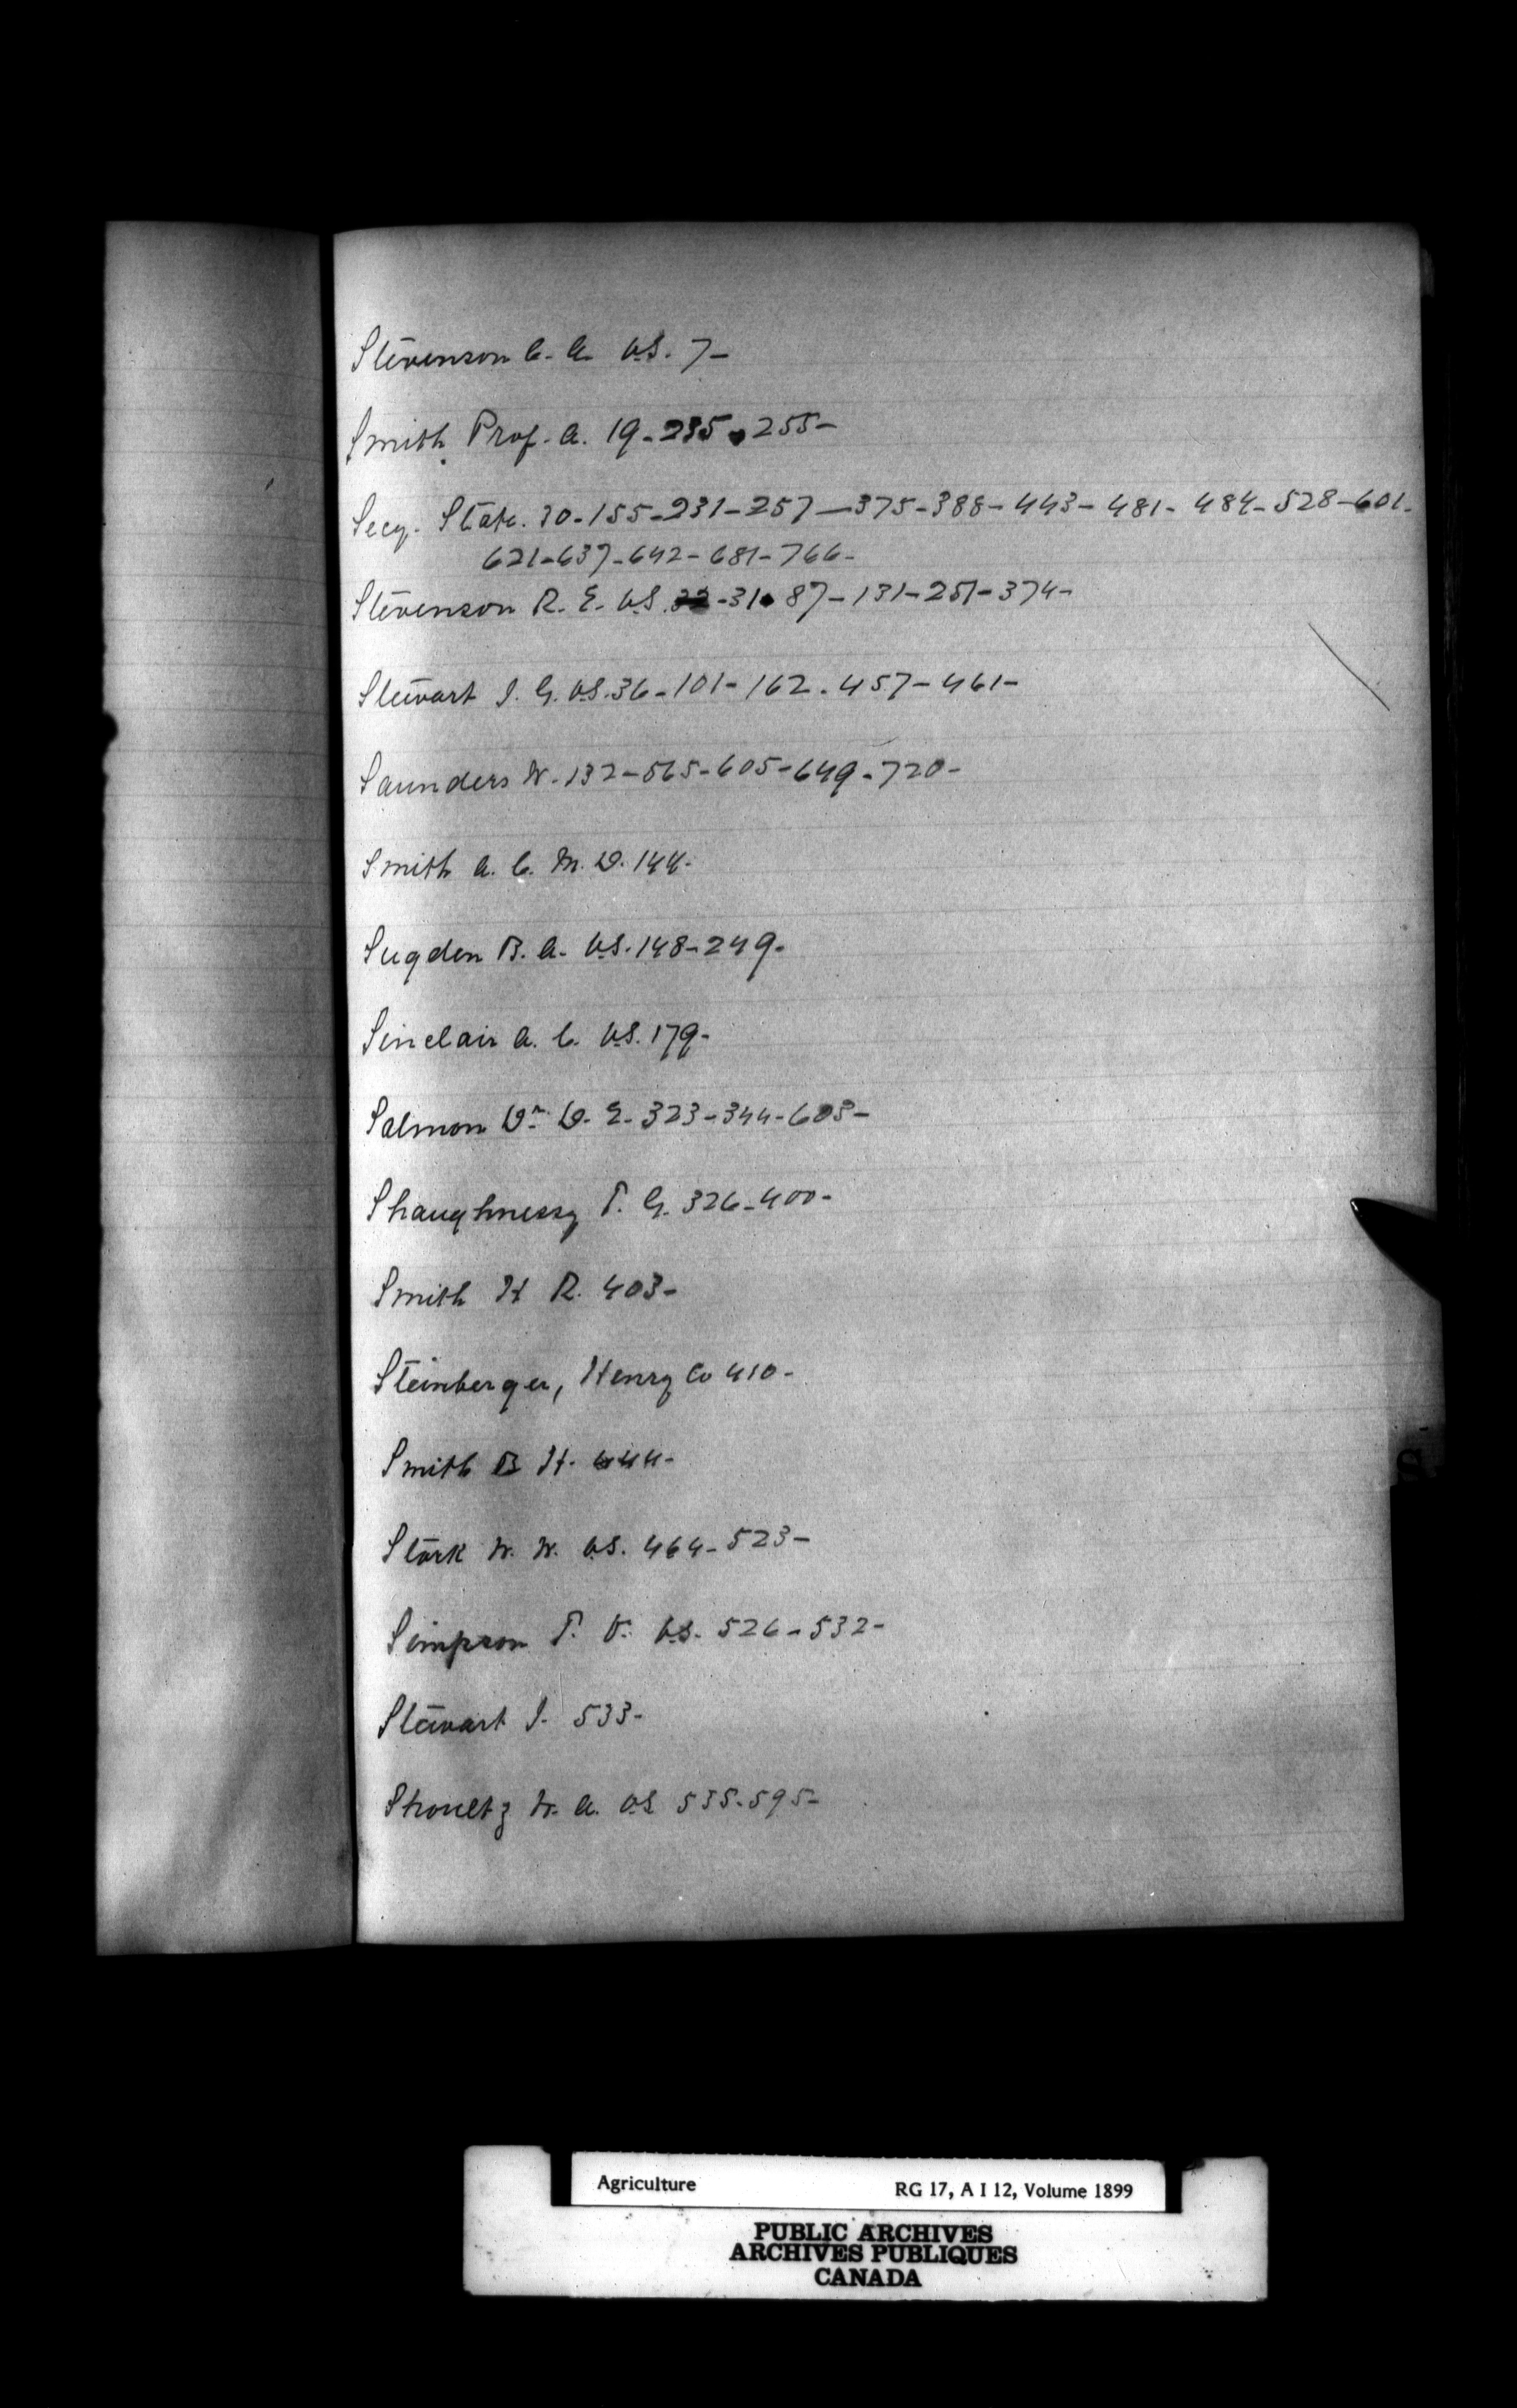 Stevenson C. A. V.S. 7-
Smith Prof. A. 19-235-255-
Secy. State. 30-155-231-257-375-388-443-481-484-528-601-
621-637-642-681-766-
Stevenson R. E. V.S. -31-87-131-251-374-
Stewart J. G. V.S. 36-101-162-457-461-
Saunders W. 132-565-605-649-720-
Smith A. C. M. D. 144-
Sugden B. A. V.S. 148-249-
Sinclair A. C. V.S. 179-
Salmon Dr. D. E. 323-344-608-
Shaughnessy T. G. 326-400-
Smith H R. 403-
Steinberger, Henry Co 410-
Smith B H. 444-
Stork W. W. V.S. 464-523-
Simpson T. V. V.S. 526-532-
Stewart J. 533-
Shoultz W. A. V.S 535-595-
S
Agriculture RG 17, A I 12, Volume 1899
PUBLIC ARCHIVES
ARCHIVES PUBLIQUES
CANADA